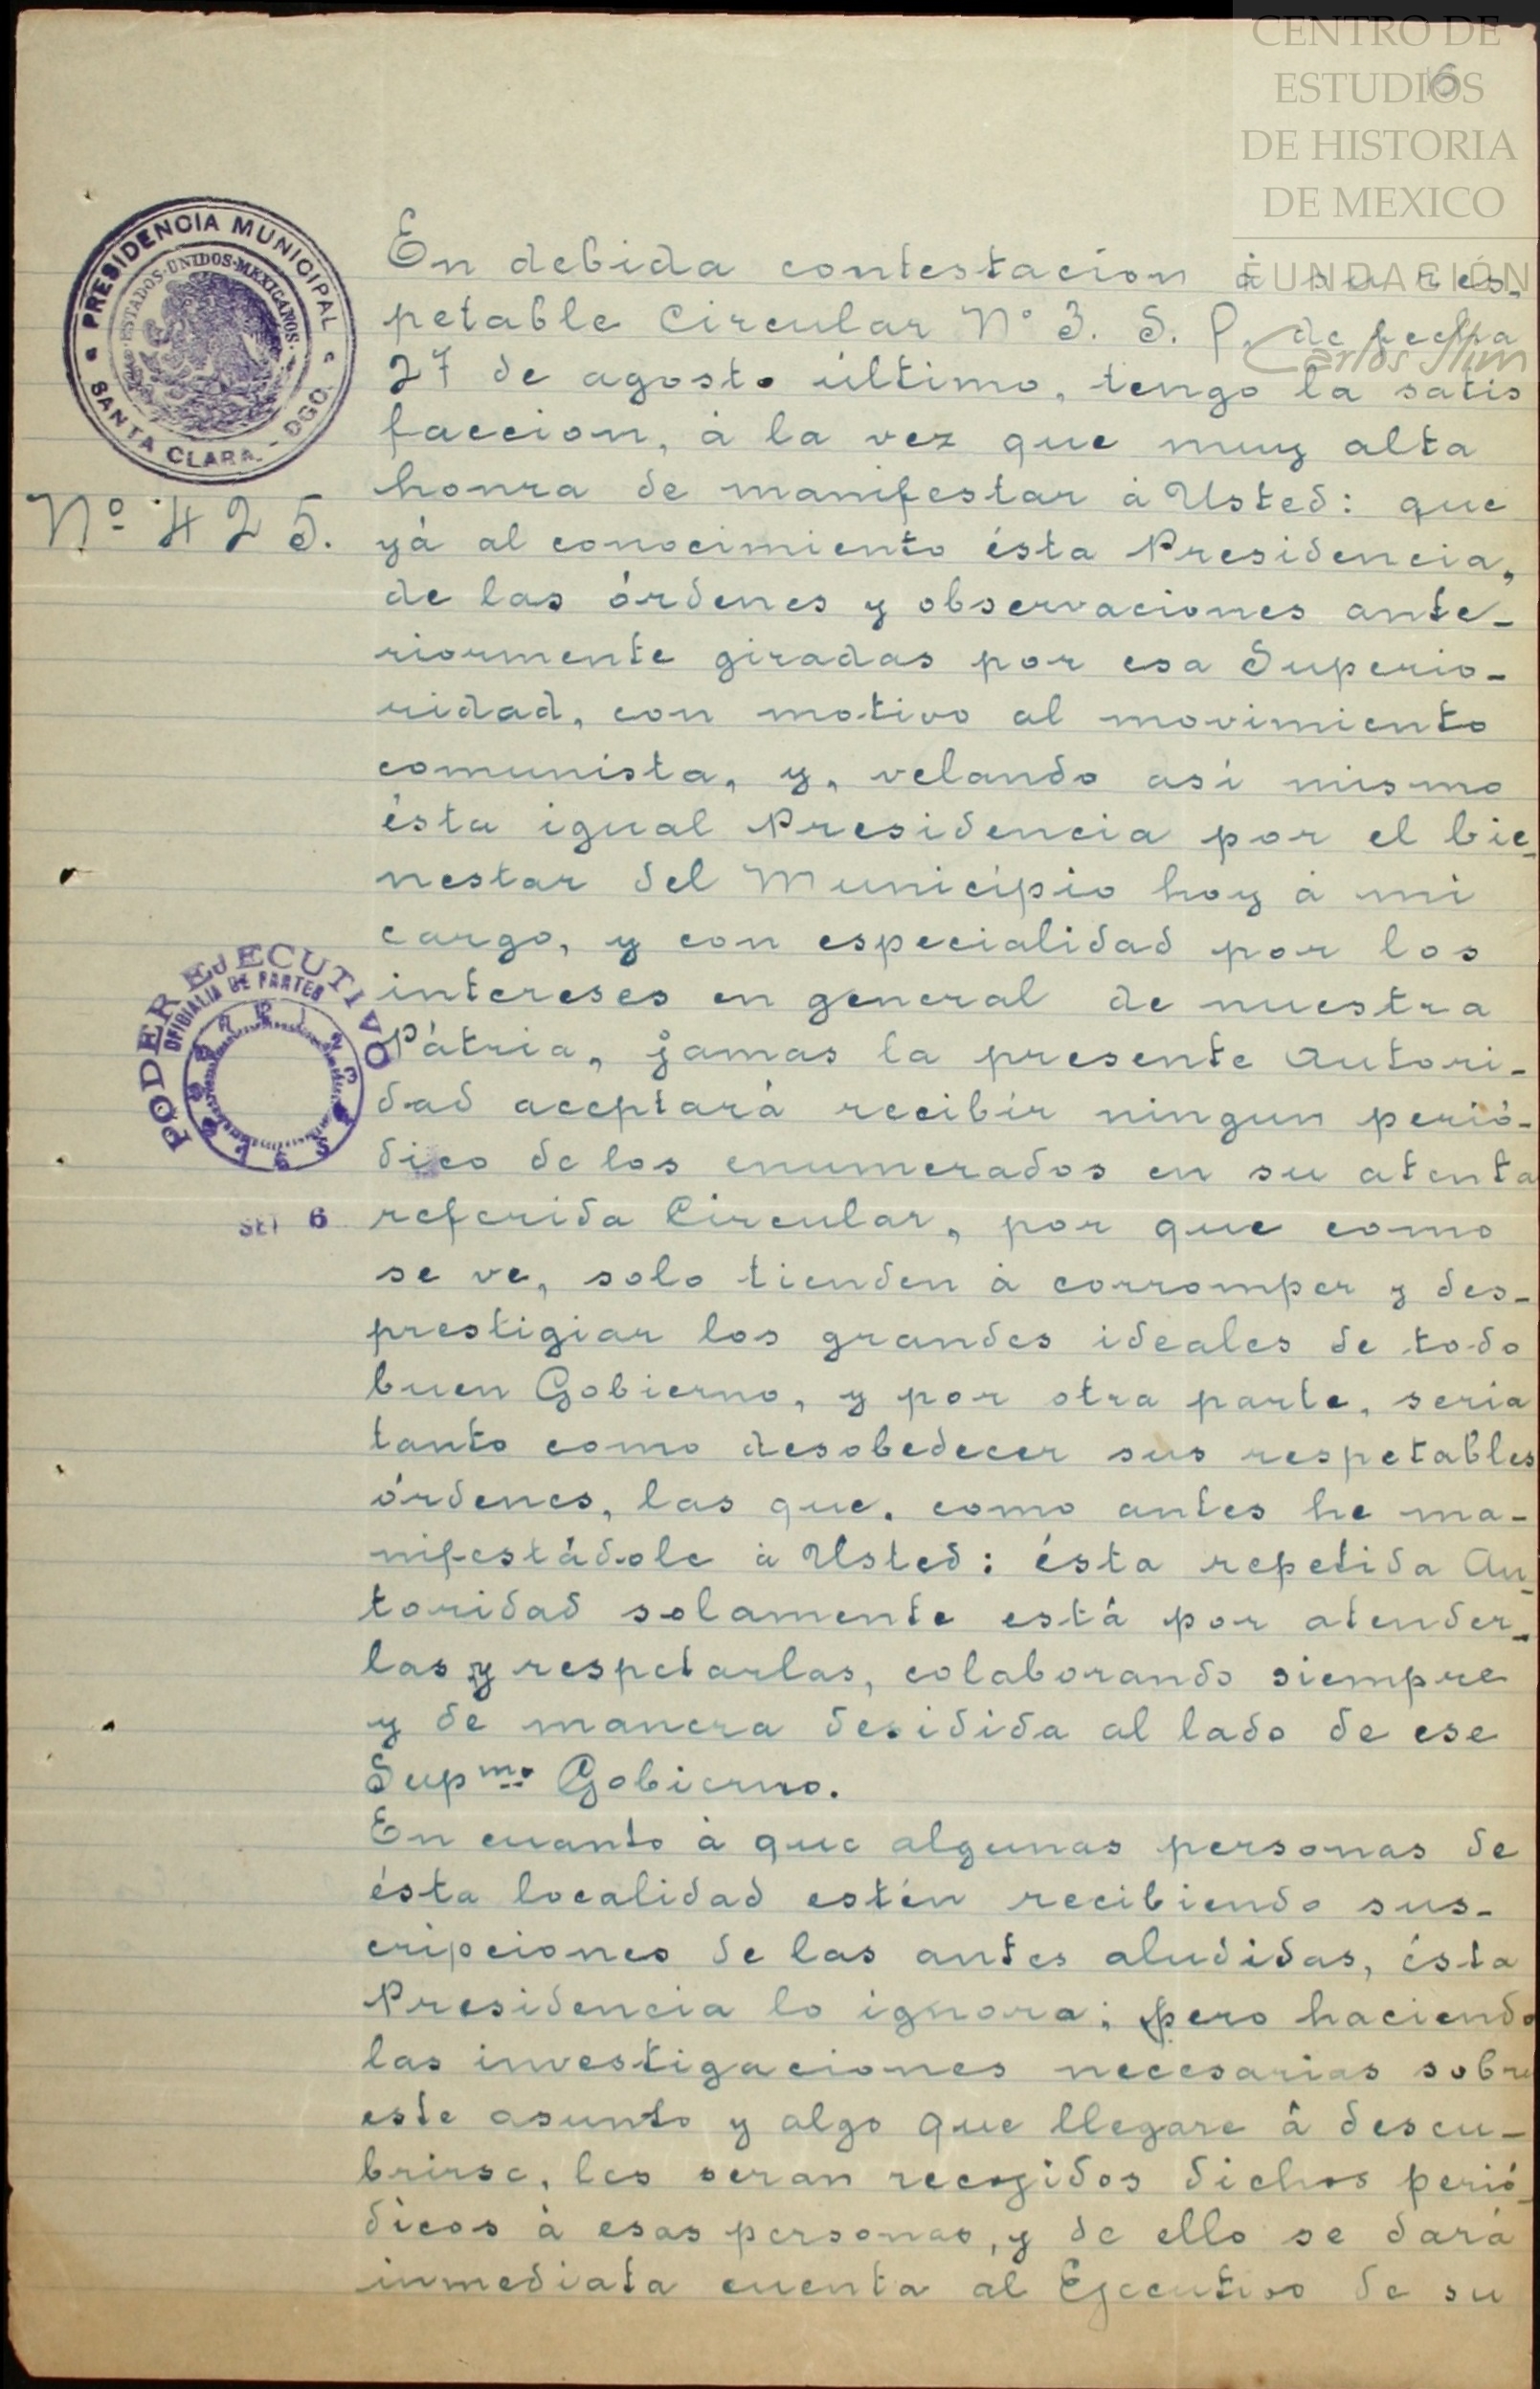 CENTRO DE
ESTUDIOS
DE HISTORIA
DE MEXICO
FUNDACIÓN
Carlos Slim
6
PRESIDENCIA MUNICIPAL
ESTADOS·UNIDOS·MEXICANOS
SANTA CLARA.-DGO.
Nº 425.
En debida contestacion à su res-
petable Circular Nº 3. S. P. de fecha
27 de agosto último, tengo la satis
faccion, à la vez que muy alta
honra de manifestar à Usted: que
yá al conocimiento ésta Presidencia,
de las órdenes y observaciones ante-
riormente giradas por esa Superio-
ridad, con motivo al movimiento
comunista, y, velando asi mismo
ésta igual Presidencia por el bie-
nestar del Municipio hoy à mi
cargo, y con especialidad por los
intereses en general de nuestra
Pátria, jamas la presente Autori-
dad aceptará recibir ningun perió-
dico de los enumerados en su atenta
referida Circular, por que como
se ve, solo tienden à corromper y des-
prestigiar los grandes ideales de todo
buen Gobierno, y por otra parte, seria
tanto como desobedecer sus respetables
órdenes, las que, como antes he ma-
nifestádole à Usted: ésta repetida Au-
toridad solamente está por atender-
las y respetarlas, colaborando siempre
y de manera desidida al lado de ese
Supmo. Gobierno.
En cuanto à que algunas personas de
ésta localidad estén recibiendo sus-
cripciones de las antes aludidas, ésta
Presidencia lo ignora; pero haciendo
las investigaciones necesarias sobre
este asunto y algo que llegare à descu-
brirse, les seran recogidos dichos perió-
dicos à esas personas, y de ello se dará
inmediata cuenta al Ejecutivo de su
PODER EJECUTIVO
OFICIALIA DE PARTES
SET 6